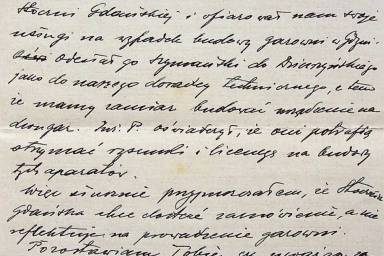 Stoczni Gdańskiej i ofiarował nam swoje
usługi na wypadek budowy gazowni w Gdyni
odesłał go Szymański do
jako do naszego doradcy technicznego, z tem
że mamy zamiar budować urządzenie na
Inż. P. oświadczył, że oni potrafią
otrzymać rysunki i licencję na budowę
tych aparatów.
Więc słusznie przypuszczałem, że Stocznia
Gdańska chce dostać zamówienie, a nie
reflektuje na prowadzenie gazowni.
Pozostawiam Tobie, czy